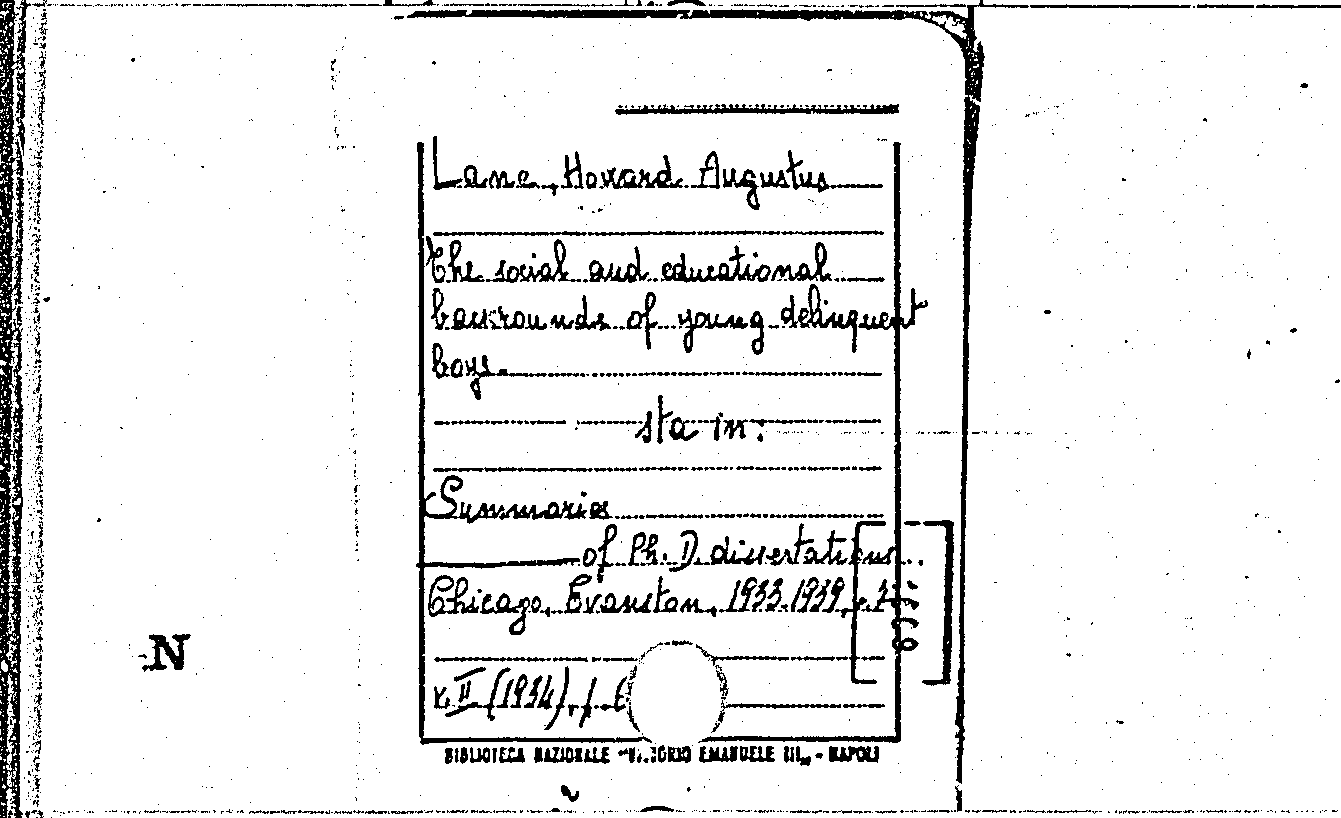 Lane, Howard Augustus
The social and educational
backrounds of young delinquent
boys.
sta in:
Summaries
of Ph. D. dissertations.
Chicago, Evanston, 1933-1939,
N
v. II (1934), p.
BIBLIOTECA NAZIONALE "VITTORIO EMANUELE III„ - NAPOLI